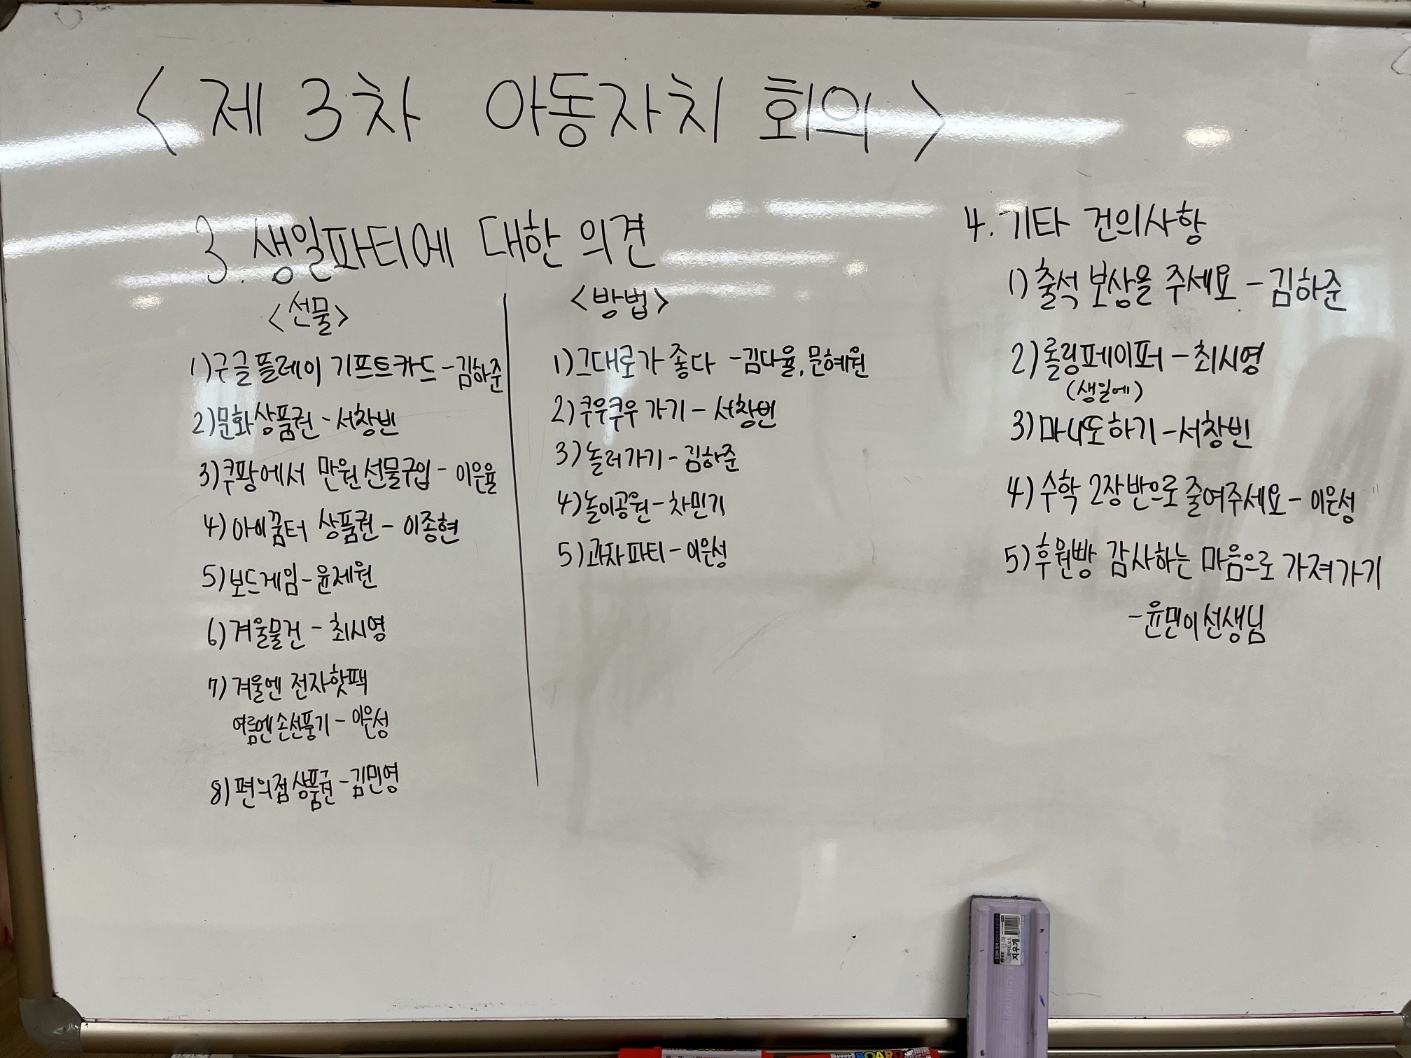 < 제 3차 아동자치 회의 >
3. 생일파티에 대한 의견
<선물>
1) 구글플레이 기프트카드 - 김하준
2) 문화상품권 - 서창빈
3) 쿠팡에서 만원 선물구입 - 이은율
4) 아이꿈터 상품권 - 이종현
5) 보드게임 - 윤제원
6) 겨울물건 - 최시영
7) 겨울엔 전자핫팩
여름엔 손선풍기 - 이은성
8) 편의점 상품권 - 김민영
<방법>
1) 그대로가 좋다 - 김다율, 문혜원
2) 쿠우쿠우 가기 - 서창빈
3) 놀러가기 - 김하준
4) 놀이공원 - 차민기
5) 과자파티 - 이은성
4. 기타 건의사항
1) 출석 보상을 주세요 - 김하준
2) 롤링페이퍼 - 최시영
(생일에)
3) 마니또하기 - 서창빈
4) 수학 2장 반으로 줄여주세요 - 이은성
5) 후원빵 감사하는 마음으로 가져가기
- 윤민이 선생님
지우개
BOARD